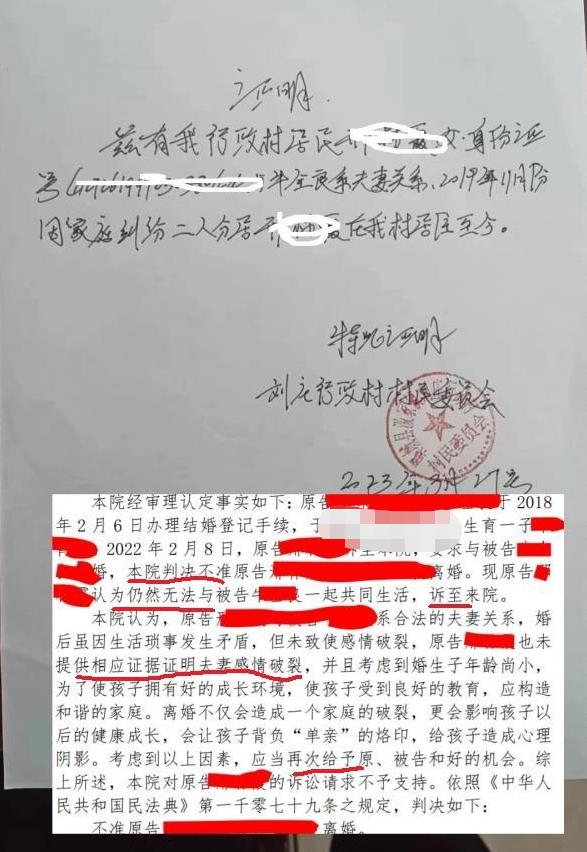 证明
兹有我行政村居民 女.身份证
号 牛全良系夫妻关系.2019年11月份
因家庭纠纷二人分居 在我村居住至今。
特此证明
刘庄行政村村民委员会
村民委员会
2023年3月27号
本院经审理认定事实如下：原告 于2018
年2月6日办理结婚登记手续，于 生育一子
2022年2月8日，原告 诉至本院，要求与被告
婚，本院判决不准原告 离婚。现原告
认为仍然无法与被告牛 良一起共同生活，诉至来院。
本院认为，原告 系合法的夫妻关系，婚
后虽因生活琐事发生矛盾，但未致使感情破裂，原告 也未
提供相应证据证明夫妻感情破裂，并且考虑到婚生子年龄尚小，
为了使孩子拥有好的成长环境，使孩子受到良好的教育，应构造
和谐的家庭。离婚不仅会造成一个家庭的破裂，更会影响孩子以
后的健康成长，会让孩子背负“单亲”的烙印，给孩子造成心理
阴影。考虑到以上因素，应当再次给予原、被告和好的机会。综
上所述，本院对原告 的诉讼请求不予支持。依照《中华人
民共和国民法典》第一千零七十九条之规定，判决如下：
不准原告 离婚。